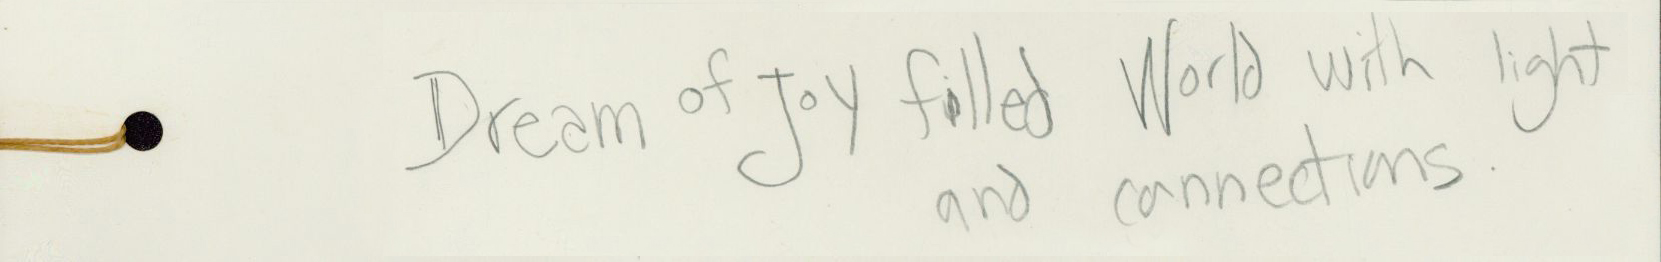 Dream of Joy filled World with light
and connections.